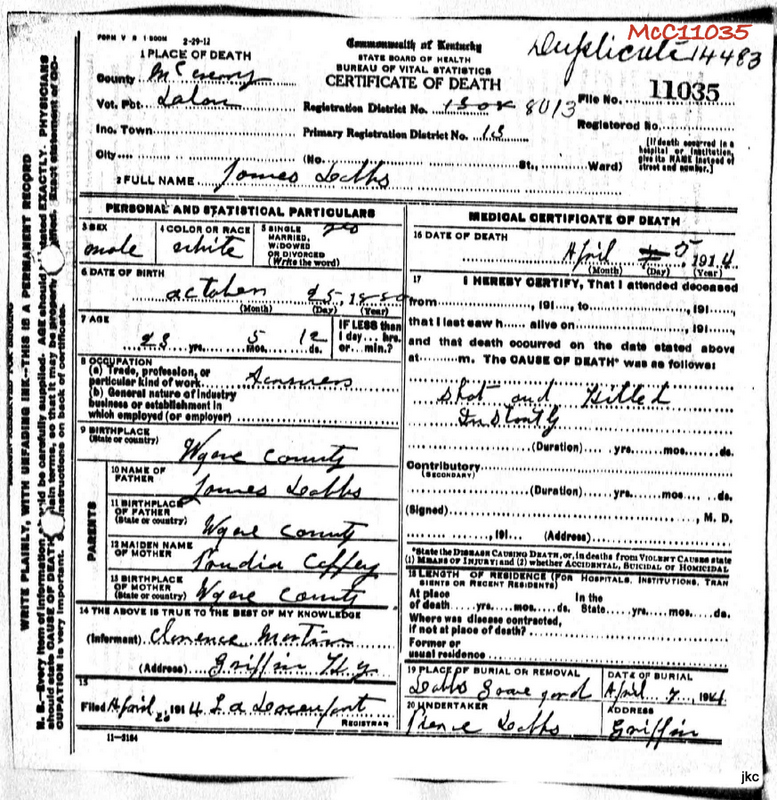 McC11035
FORM V S 1 500M 2-29-12
Duplicate 14483
1 PLACE OF DEATH
Commonwealth of Kentucky
STATE BOARD OF HEALTH
BUREAU OF VITAL STATISTICS
CERTIFICATE OF DEATH
County McCreary
Vot. Pct.
Registration District No. 8013
File No. 11035
Inc. Town
Primary Registration District No. 13
Registered No.
City
(No. St., Ward)
[If death occurred in a hospital or institution, give its NAME instead of street and number.]
2 FULL NAME James Dobbs
PERSONAL AND STATISTICAL PARTICULARS
3 SEX
male
4 COLOR OR RACE
white
5 SINGLE MARRIED, WIDOWED OR DIVORCED (Write the word)
6 DATE OF BIRTH
October 25, 18
(Month) (Day) (Year)
7 AGE
23 yrs. 5 mos. 12 ds.
IF LESS than 1 day... hrs. or... min.?
8 OCCUPATION
(a) Trade, profession, or particular kind of work
(b) General nature of industry business or establishment in which employed (or employer)
9 BIRTHPLACE
(State or country)
Wyane County
PARENTS
10 NAME OF FATHER
James Dobbs
11 BIRTHPLACE OF FATHER
(State or country)
Wyane County
12 MAIDEN NAME OF MOTHER
Coffey
13 BIRTHPLACE OF MOTHER
(State or country)
Wyane County
14 THE ABOVE IS TRUE TO THE BEST OF MY KNOWLEDGE
(Informant) Clarence Martin
(Address) Griffin Ky
15
Filed April 1914
REGISTRAR
11-3184
MEDICAL CERTIFICATE OF DEATH
16 DATE OF DEATH
April 5, 1914
(Month) (Day) (Year)
17 I HEREBY CERTIFY, That I attended deceased
from , 191 , to , 191 ,
that I last saw h alive on , 191 ,
and that death occurred on the date stated above
at m. The CAUSE OF DEATH* was as follows:
Shot and Killed
Instantly
(Duration) yrs. mos. ds.
Contributory
(SECONDARY)
(Duration) yrs. mos. ds.
(Signed) , M. D.
, 191 (Address)
*State the DISEASE CAUSING DEATH, or, in deaths from VIOLENT CAUSES state (1) MEANS OF INJURY; and (2) whether ACCIDENTAL, SUICIDAL OR HOMICIDAL
18 LENGTH OF RESIDENCE (FOR HOSPITALS, INSTITUTIONS, TRANSIENTS OR RECENT RESIDENTS)
At place of death yrs. mos. ds. In the State yrs. mos. ds.
Where was disease contracted, if not at place of death?
Former or usual residence
19 PLACE OF BURIAL OR REMOVAL
Dobbs Grave yard
DATE OF BURIAL
April 7, 1914
20 UNDERTAKER
Dobbs
ADDRESS
Griffin
WRITE PLAINLY, WITH UNFADING INK—THIS IS A PERMANENT RECORD
jkc